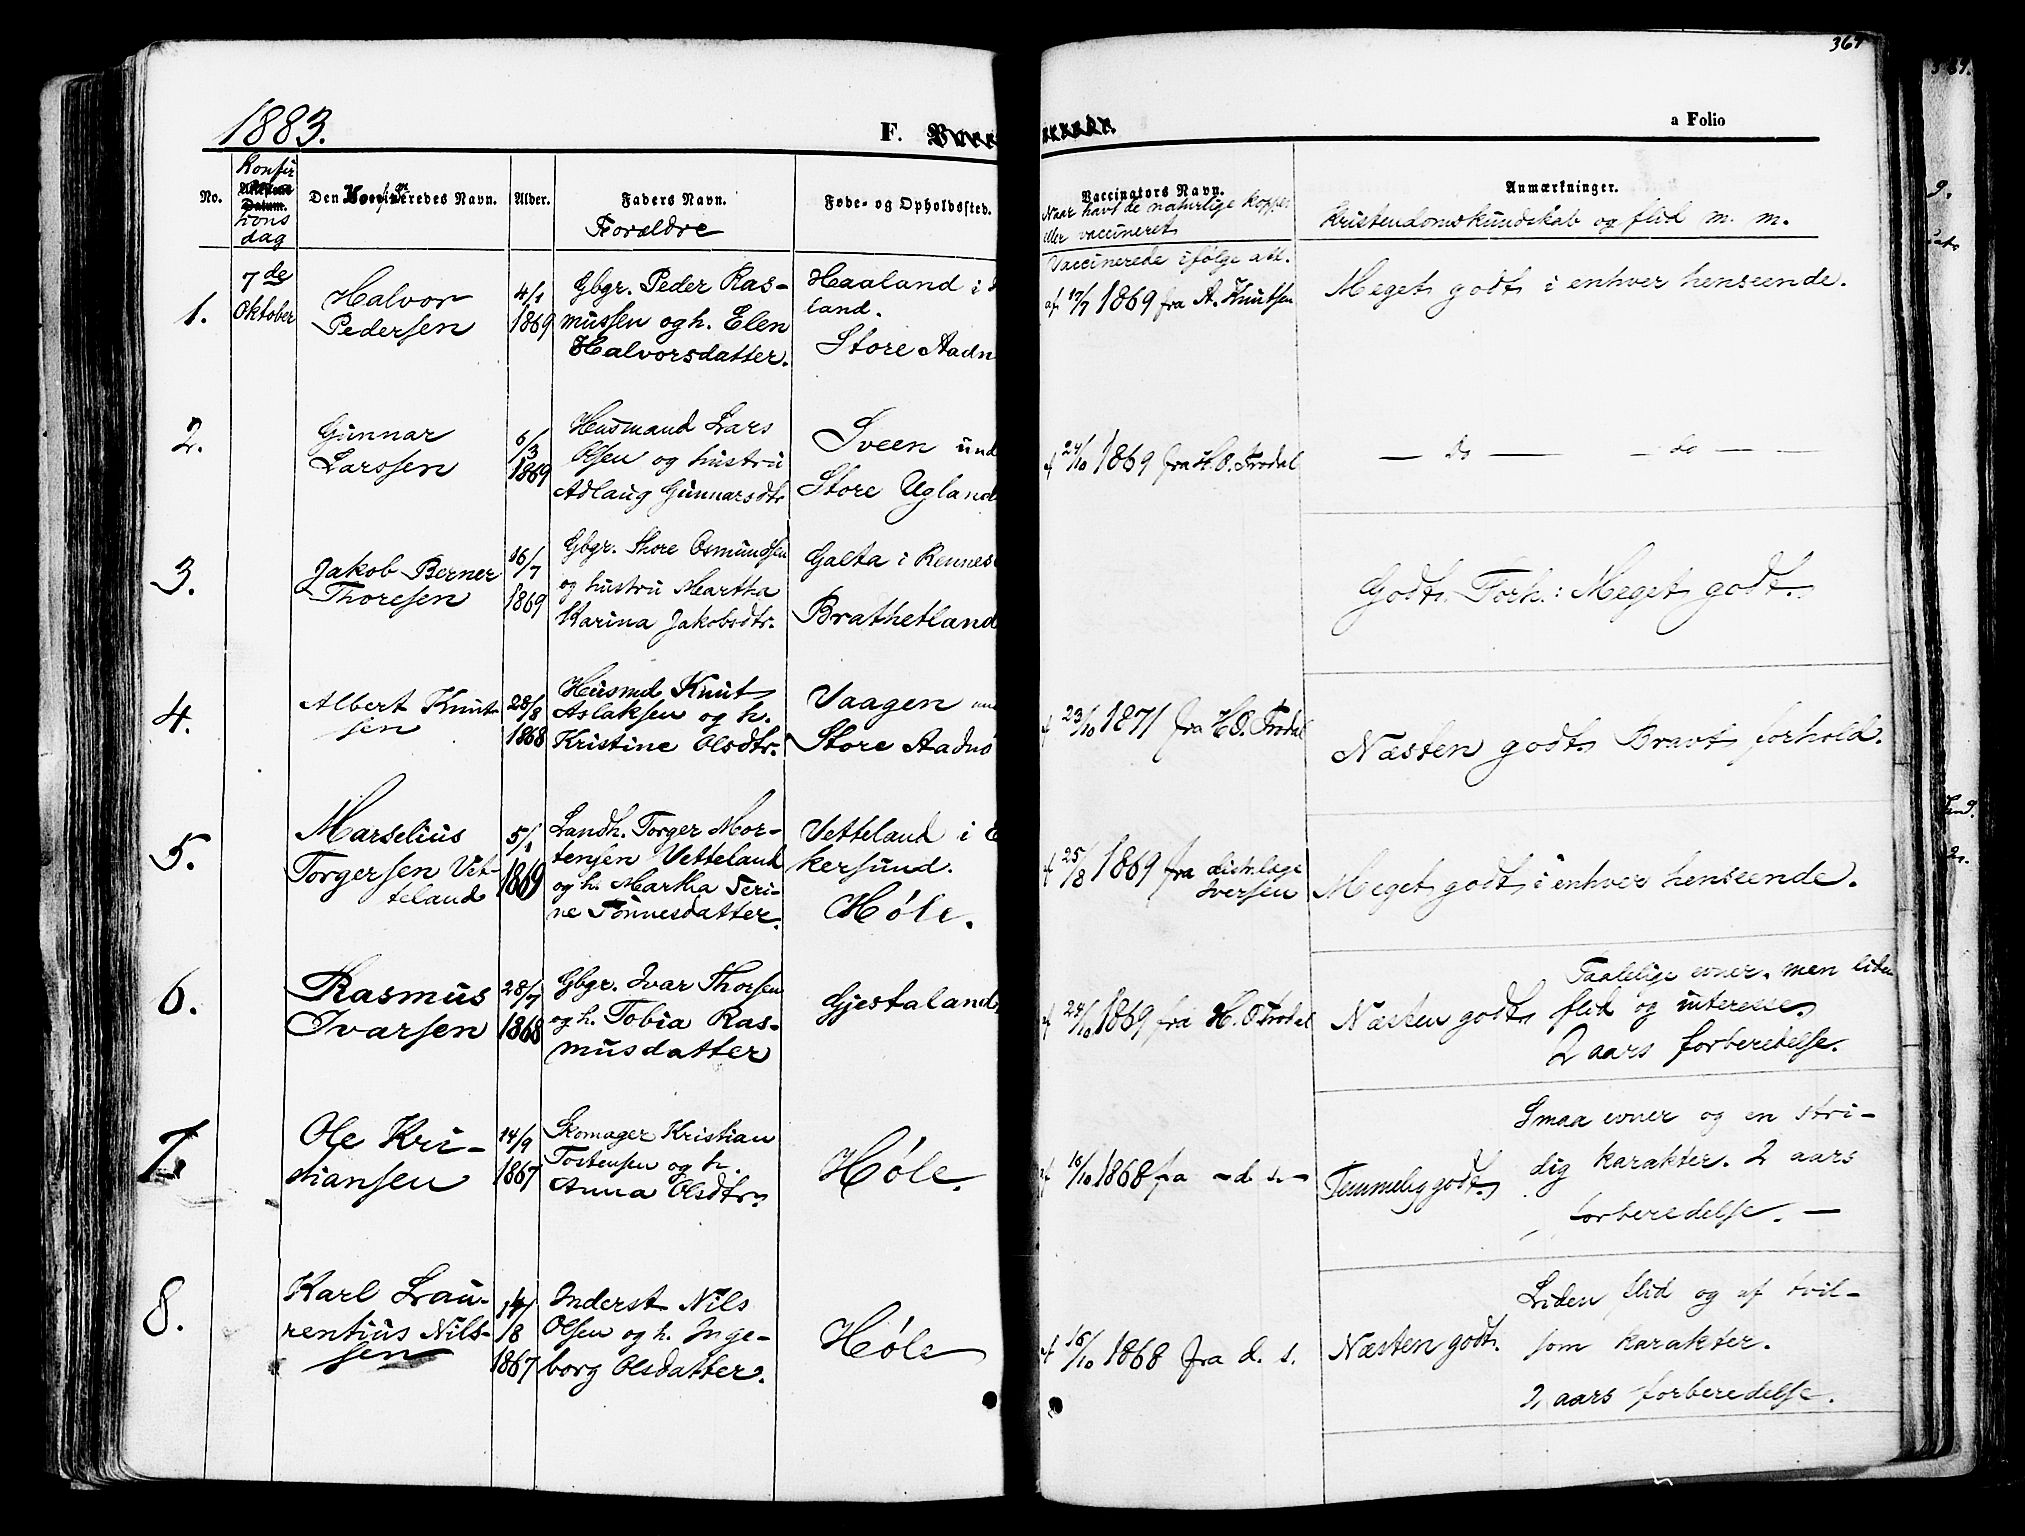 367
1883.
F.
a Folio
No.
Konfir
Datum.
tions
dag
Den Konfirmeredes Navn.
Alder.
Faders Navn.
Forældre
Føde- og Opholdssted.
Vaccinators Navn.
Naar havt de naturlige kopper
eller vaccineret
Anmærkninger.
Kristendomskundskab og flid m. m.
1.
7de
Oktober
Halvor
Pedersen
4/1
1869
Gbgr. Peder Ras-
mussen og h. Elen
Halvorsdatter.
Haaland i
land.
Store Aadn
Vaccinerede ifølge att.
af 17/7 1869 fra A. Knutsen
Meget godt i enhver henseende.
2.
Gunnar
Larssen
6/3
1869
Husmand Lars
Olsen og hustru
Adlaug Gunnarsdtr
Sveen und
Store Ugland
24/10 1869 fra H. O. Frodal
— do — — do — —
3.
Jakob Berner
Thoresen
16/7
1869
Gbgr. Thore Osmundsen
og hustru Martha
Karina Jakobsdtr.
Galta i Rennes
Brathetland
Godt. Forh.: Meget godt.
4.
Albert Knut-
sen
28/8
1868
Husmd Knut
Aslaksen og h.
Kristine Olsdtr.
Vaagen un
Store Aadnø
f 23/10 1871 fra H. O. Frodal
Næsten godt Bravt forhold.
5.
Marselius
Torgersen Vet-
teland
5/1
1869
Landh. Torger Mor-
tensen Vetteland
og h. Martha Seri-
ne Tønnesdatter.
Vetteland i E
kersund.
Høle.
f 25/8 1869 fra distr.læge
Iversen
Meget godt i enhver henseende.
6.
Rasmus
Ivarsen
28/7
1868
Gbgr. Ivar Thorsen
og h. Tobia Ras-
musdatter
Gjestaland
f 24/10 1869 fra H. O Frodal
Næsten godt
Taalelige evner. men liden
flid og interesse.
2 aars forberedelse.
7.
Ole Kri-
stiansen
14/9
1867
Skomager Kristian
Tostensen og h.
Anna Olsdtr.
Høle.
f 16/10 1868 fra - d. s. -
Temmelig godt.
Smaa evner og en stri-
dig karakter. 2 aars
forberedelse. —
8.
Karl Lau-
rentius Nils-
sen
14/
8
1867
Inderst Nils
Olsen og h. Inge-
borg Olsdatter.
Høle
f 16/10 1868 fra d. s.
Næsten godt.
Liden flid og af tvil-
som karakter.
2 aars forberedelse.